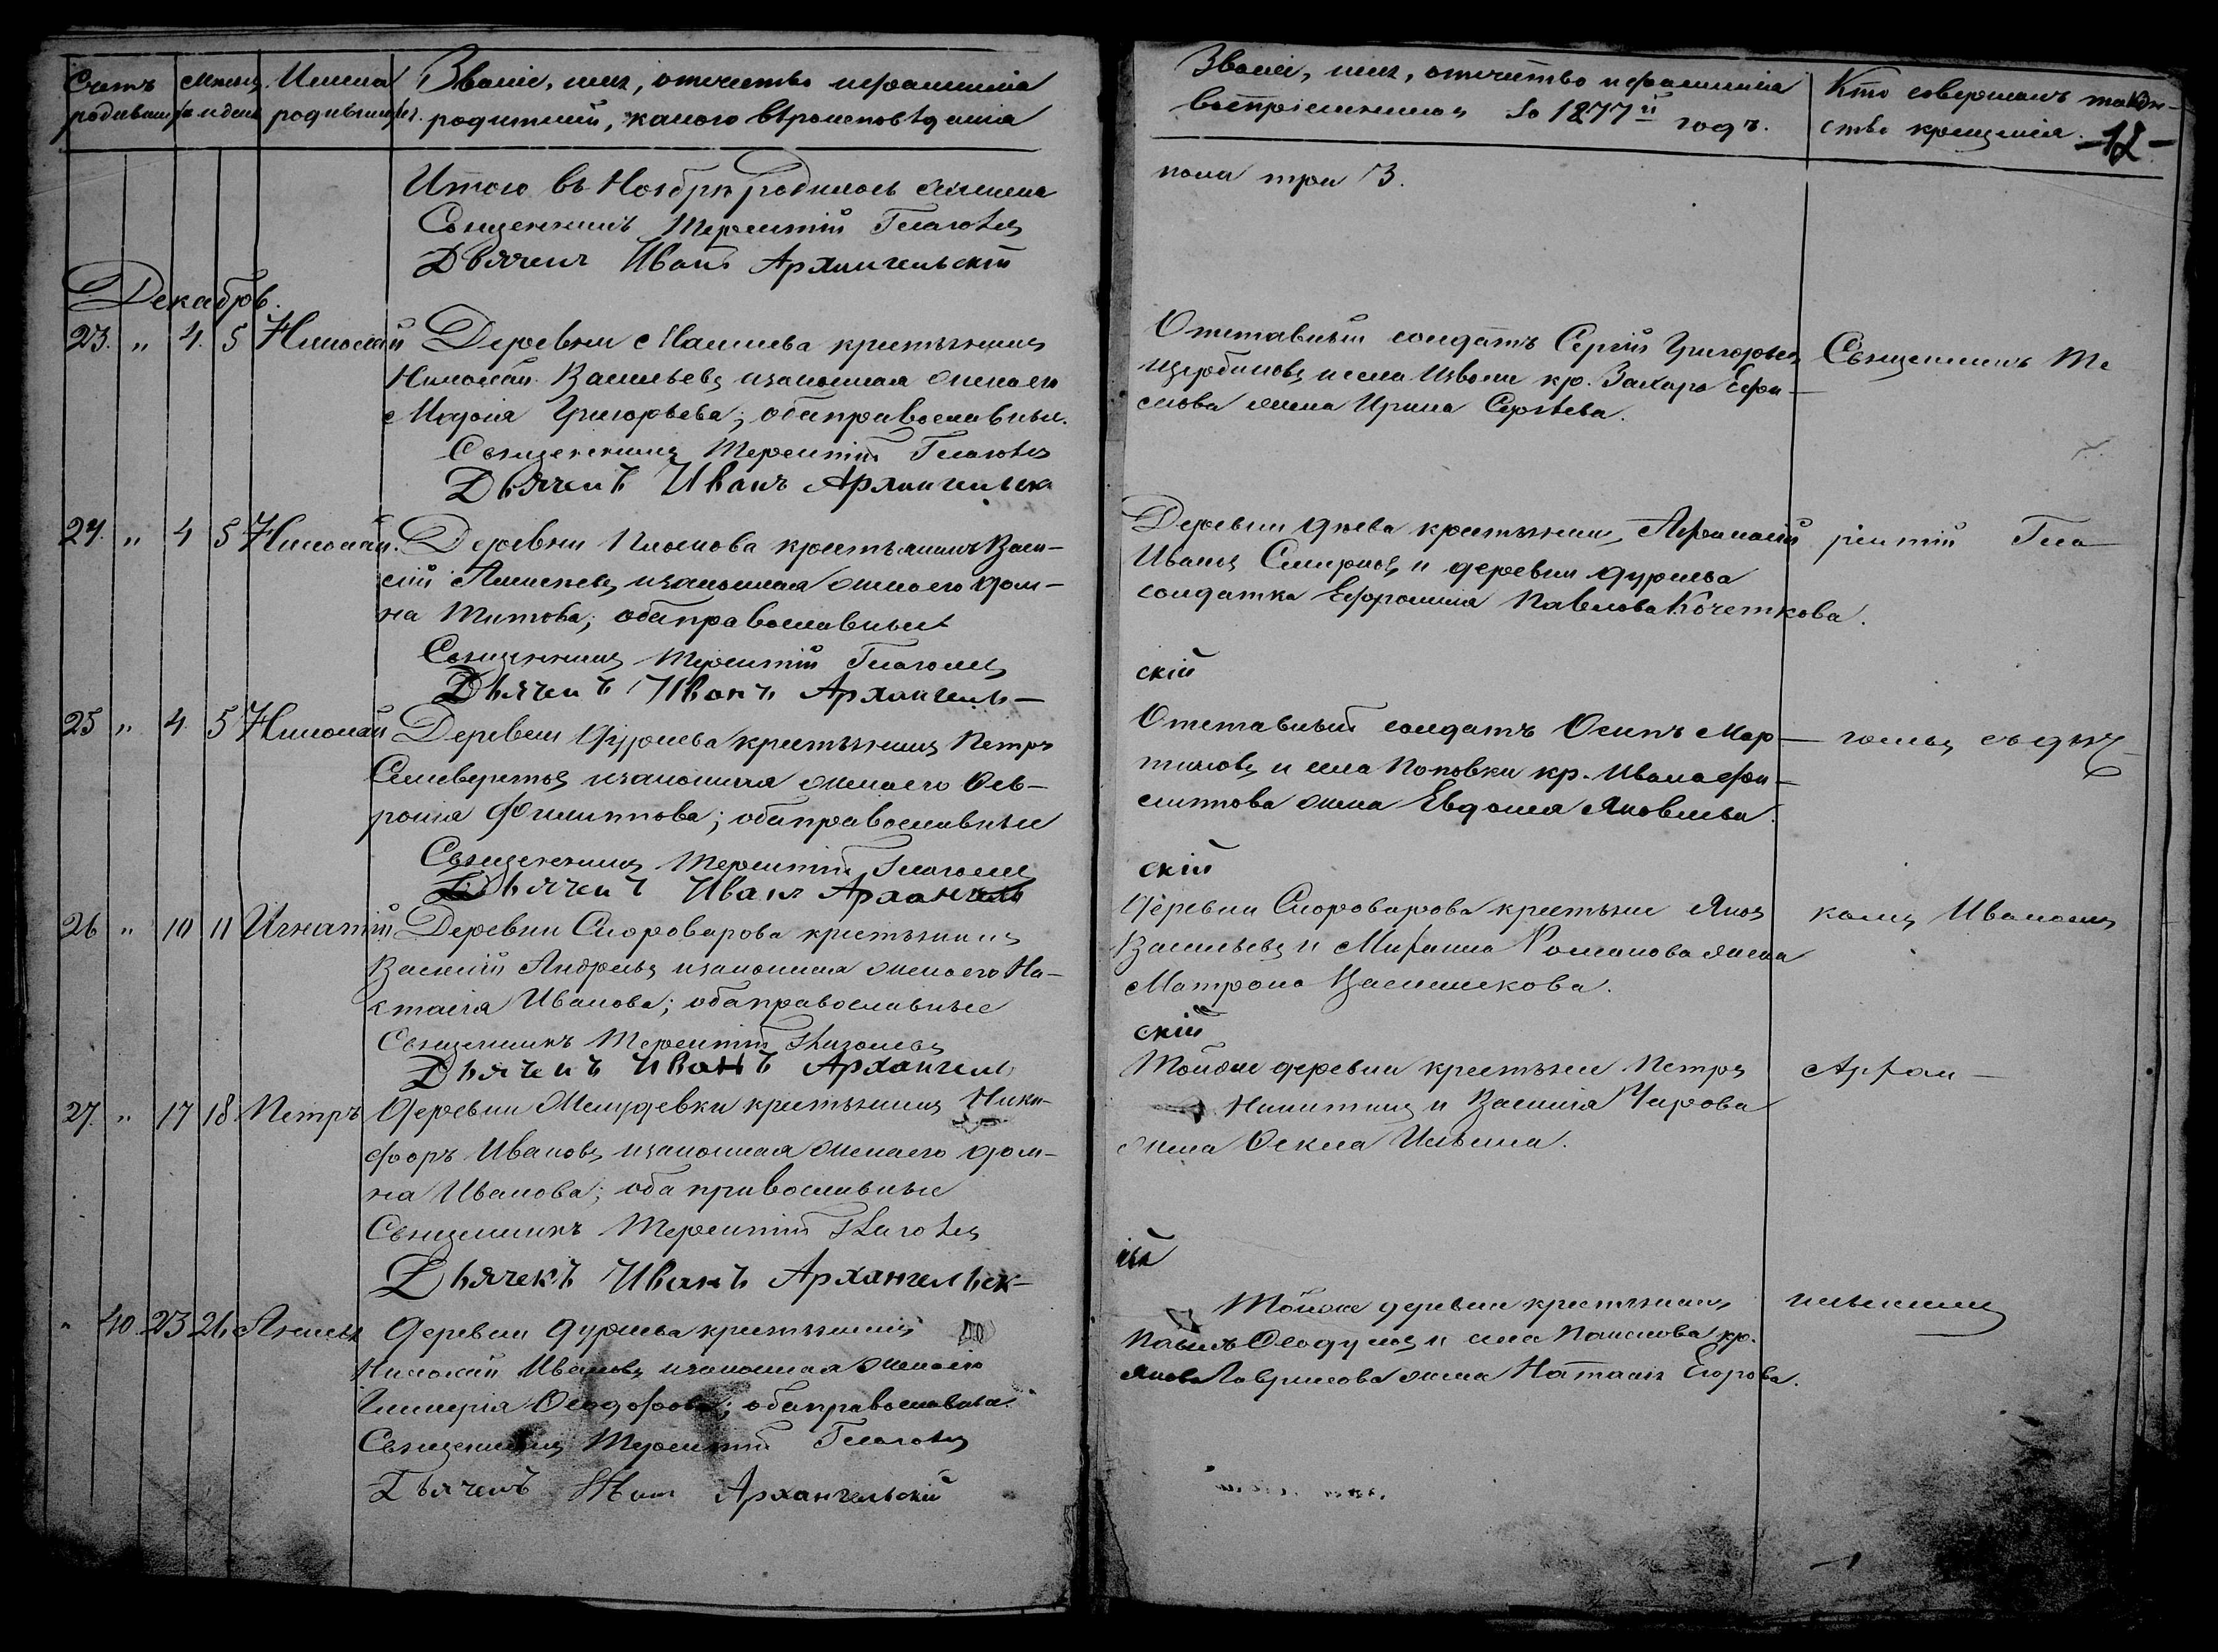 Счетъ родившихся
Мѣсяцъ и день
Имена родившихся.
Званіе, имя, отчество и фамилія
родителей, какого вѣроисповѣданія
Итого въ Ноябрѣ родилось женска
Священникъ Терентій Глаголевъ
Дьячекъ Иванъ Архангельскій
Декабрь.
23. „ 4. 5 Николай Деревни крестьянинъ
Николай Васильевъ и законная жена его
Марѳа Григорьева; оба православные.
Священникъ Терентій Глаголевъ
Дьячекъ Иванъ Архангельск
24. „ 4 5 Николай. Деревни крестьянинъ Васи-
лій Алексѣевъ и законная жена его Дом-
на Титова; оба православные
Священникъ Терентій Глаголевъ
Дьячекъ Иванъ Архангель-
25 „ 4. 5 Николай Деревни Дурнева крестьянинъ Петръ
Селиверстовъ и законная жена его Фев-
ронія Филиппова; оба православные
Священникъ Терентій Глаголев
Дьячекъ Иванъ Архангель
26 „ 10 11 Игнатій Деревни Скороварова крестьянинъ
Василій Андреевъ и законная жена его На-
талія Иванова; оба православные
Священникъ Терентій Глаголевъ
Дьячекъ Иванъ Архангель
27. „ 17 18 Петръ Деревни крестьянинъ Ники-
форъ Ивановъ и законная жена его Дом-
на Иванова; оба православные
Священникъ Терентій Глаголевъ
Дьячекъ Иванъ Архангельск-
„ 40 23 Деревни Дурнева крестьянинъ
Николай Ивановъ и законная жена его
Гликерія Ѳеодорова; оба православные
Священникъ Терентій Глаголевъ
Дьячекъ Иванъ Архангельскій
Званіе, имя, отчество и фамилія
воспріемниковъ За 1877й годъ.
Кто совершалъ таин-
ство крещенія. -12-
пола три 3.
Отставный солдатъ Сергій Григорьевъ
Щербаковъ и села кр. Захара Ефи-
мова жена Ирина Сергѣева.
Священникъ Те
Деревни крестьянинъ Афанасій
Ивановъ Смирновъ и деревни Дурнева
солдатка Ефросинія Павлова Кочеткова.
рентій Гла-
скій
Отставный солдатъ Осипъ Мар-
тиновъ и села Поповки кр. Ивана Фи-
липпова жена Евдокія Яковлева
голевъ съ дья-
скій
Деревни Скороварова крестьяне Яковъ
Васильевъ и Михаила Романова жена
Матрона Васильева.
комъ Иваномъ
скій
Тойже деревни крестьяне Петръ
Никитинъ и Василія Чирова
жена Ѳекла Ильина.
Архан-
ій
Тойже деревни крестьянинъ
Павелъ Ѳедуловъ и села кр.
Якова Гаврилова жена Наталія Егорова.
гельскимъ